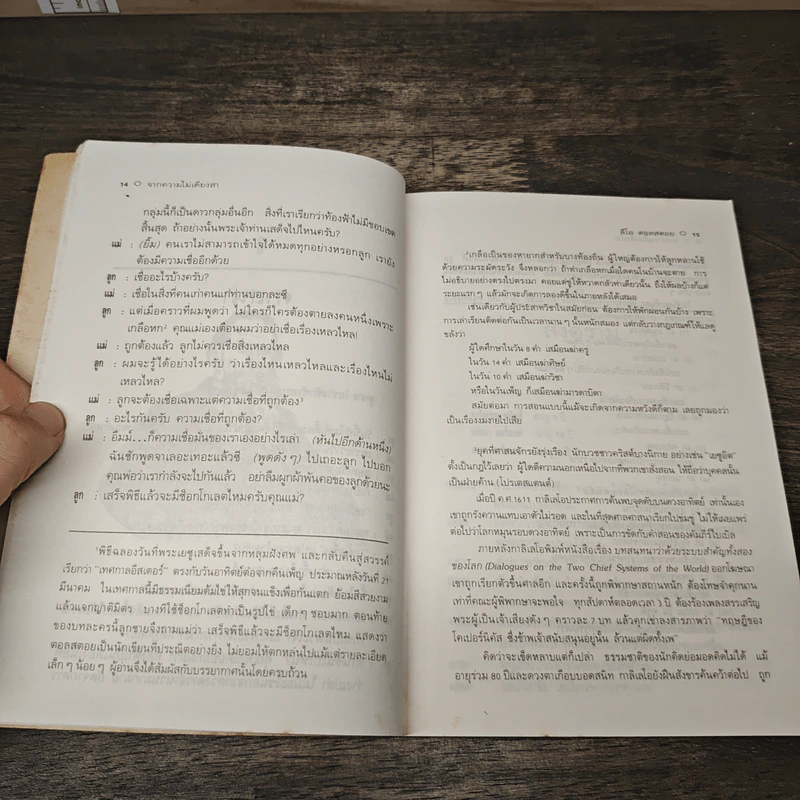 14 ○ จากความไม่เดียงสา
กลุ่มนี้ก็เป็นดาวกลุ่มอื่นอีก สิ่งที่เราเรียกว่าท้องฟ้าไม่มีขอบเขต
สิ้นสุด ถ้าอย่างนั้นพระเจ้าท่านเสด็จไปไหนครับ?
แม่ : (ยิ้ม) คนเราไม่สามารถเข้าใจได้หมดทุกอย่างหรอกลูก เรายัง
ต้องมีความเชื่ออีกด้วย
ลูก : เชื่ออะไรบ้างครับ?
แม่ : เชื่อในสิ่งที่คนเก่าคนแก่ท่านบอกละซี
ลูก : แต่เมื่อคราวที่ผมพูดว่า ไม่ใครก็ใครต้องตายลงคนหนึ่งเพราะ
เกลือหก² คุณแม่เองเตือนผมว่าอย่าเชื่อเรื่องเหลวไหล!
แม่ : ถูกต้องแล้ว ลูกไม่ควรเชื่อสิ่งเหลวไหล
ลูก : ผมจะรู้ได้อย่างไรครับ ว่าเรื่องไหนเหลวไหลและเรื่องไหนไม่
เหลวไหล?
แม่ : ลูกจะต้องเชื่อเฉพาะแต่ความเชื่อที่ถูกต้อง³
ลูก : อะไรกันครับ ความเชื่อที่ถูกต้อง?
แม่ : อืมม์...ก็ความเชื่อมั่นของเราเองอย่างไรเล่า (หันไปอีกด้านหนึ่ง)
ฉันชักพูดจาเลอะเทอะแล้วซี (พูดดัง ๆ) ไปเถอะลูก ไปบอก
คุณพ่อว่าเรากำลังจะไปกันแล้ว อย่าลืมผูกผ้าพันคอของลูกด้วยนะ
ลูก : เสร็จพิธีแล้วจะมีช็อกโกเลตไหมครับคุณแม่?
¹พิธีฉลองวันที่พระเยซูเสด็จขึ้นจากหลุมฝังศพ และกลับคืนสู่สวรรค์
เรียกว่า “เทศกาลอีสเตอร์” ตรงกับวันอาทิตย์ต่อจากคืนเพ็ญ ประมาณหลังวันที่ 21
มีนาคม ในเทศกาลนี้มีธรรมเนียมต้มไข่ให้สุกจนแข็งเพื่อกันแตก ย้อมสีสวยงาม
แล้วแจกญาติมิตร บางทีใช้ช็อกโกเลตทำเป็นรูปไข่ เด็ก ๆ ชอบมาก ตอนท้าย
ของบทละครนี้ลูกชายจึงถามแม่ว่า เสร็จพิธีแล้วจะมีช็อกโกเลตไหม แสดงว่า
ตอลสตอยเป็นนักเขียนที่ประณีตอย่างยิ่ง ไม่ยอมให้ตกหล่นไปแม้แต่รายละเอียด
เล็ก ๆ น้อย ๆ ผู้อ่านจึงได้สัมผัสกับบรรยากาศนั้นโดยครบถ้วน
ลีโอ ตอลสตอย ○ 15
²เกลือเป็นของหายากสำหรับบางท้องถิ่น ผู้ใหญ่ต้องการให้ลูกหลานใช้
ด้วยความระมัดระวัง จึงหลอกว่า ถ้าทำเกลือหกเมื่อใดคนในบ้านจะตาย การ
ไม่อธิบายอย่างตรงไปตรงมา คอยแต่ขู่ให้หวาดกลัวท่าเดียวนั้น ถึงให้ผลบ้างก็แต่
ระยะแรก ๆ แล้วมักจะเกิดการลองดีขึ้นในภายหลังได้เสมอ
เช่นเดียวกับผู้ประสิทธิ์วิชาในสมัยก่อน ต้องการให้พักผ่อนกันบ้าง เพราะ
การเล่าเรียนติดต่อกันเป็นเวลานาน ๆ นั้นหนักสมอง แต่กลับวางกฎเกณฑ์ให้แลดู
ขลังว่า
ผู้ใดศึกษาในวัน 8 ค่ำ เสมือนฆ่าครู
ในวัน 14 ค่ำ เสมือนฆ่าศิษย์
ในวัน 10 ค่ำ เสมือนฆ่าวิชา
หรือในวันเพ็ญ ก็เสมือนฆ่ามารดาบิดา
สมัยต่อมา การสอนแบบนี้แม้จะเกิดจากความหวังดีก็ตาม เลยถูกมองว่า
เป็นเรื่องงมงายไปเสีย
³ยุคที่ศาสนจักรยังรุ่งเรือง นักบวชชาวคริสต์บางนิกาย อย่างเช่น “เยซูอิต”
ตั้งเป็นกฎไว้เลยว่า ผู้ใดตีความนอกเหนือไปจากที่พวกเขาสั่งสอน ให้ถือว่าบุคคลนั้น
เป็นฝ่ายค้าน (โปรเตสแตนต์)
เมื่อปี ค.ศ.1611 กาลิเลโอประกาศการค้นพบจุดดับบนดวงอาทิตย์ เท่านั้นเอง
เขาถูกรังควานแทบเอาตัวไม่รอด และในที่สุดศาลศาสนาเรียกไปข่มขู่ ไม่ให้เผยแพร่
ต่อไปว่าโลกหมุนรอบดวงอาทิตย์ เพราะเป็นการขัดกับคำสอนของคัมภีร์ไบเบิล
ภายหลังกาลิเลโอพิมพ์หนังสือเรื่อง บทสนทนาว่าด้วยระบบสำคัญทั้งสอง
ของโลก (Dialogues on the Two Chief Systems of the World) ออกโฆษณา
เขาถูกเรียกตัวขึ้นศาลอีก และครั้งนี้ถูกพิพากษาสถานหนัก ต้องโทษจำคุกนาน
เท่าที่คณะผู้พิพากษาจะพอใจ ทุกสัปดาห์ตลอดเวลา 3 ปี ต้องร้องเพลงสรรเสริญ
พระผู้เป็นเจ้าเสียงดัง ๆ คราวละ 7 บท แล้วคุกเข่าลงสารภาพว่า “ทฤษฎีของ
โคเปอร์นิคัส ซึ่งข้าพเจ้าสนับสนุนอยู่นั้น ล้วนแต่ผิดทั้งเพ”
คิดว่าจะเข็ดหลาบแต่ก็เปล่า ธรรมชาติของนักคิดย่อมอดคิดไม่ได้ แม้
อายุร่วม 80 ปีและดวงตาเกือบบอดสนิท กาลิเลโอยังฝืนสังขารค้นคว้าต่อไป ถูก